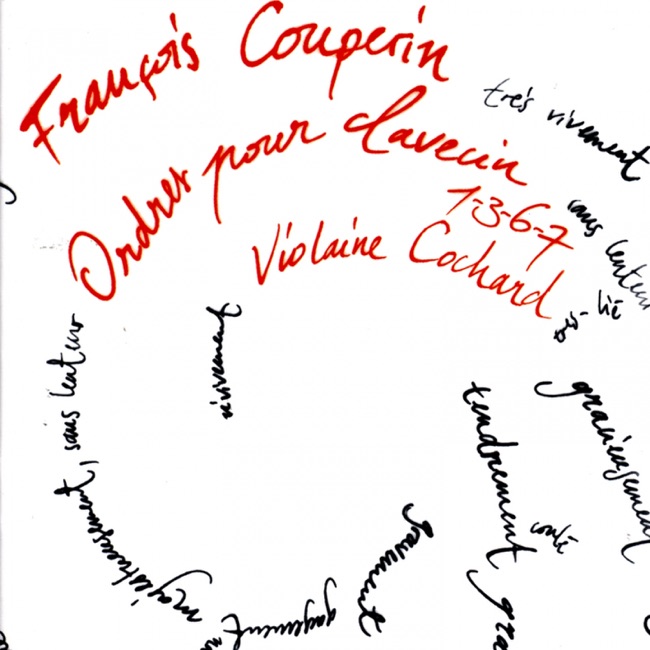 François Couperin
Ordres pour clavecin
1-3-6-7
Violaine Cochard
très vivement
sans lenteur
lié
vivement
sans lenteur
majestueusement,
gayement
gravement
tendrement
gracieusement
coulé
gra